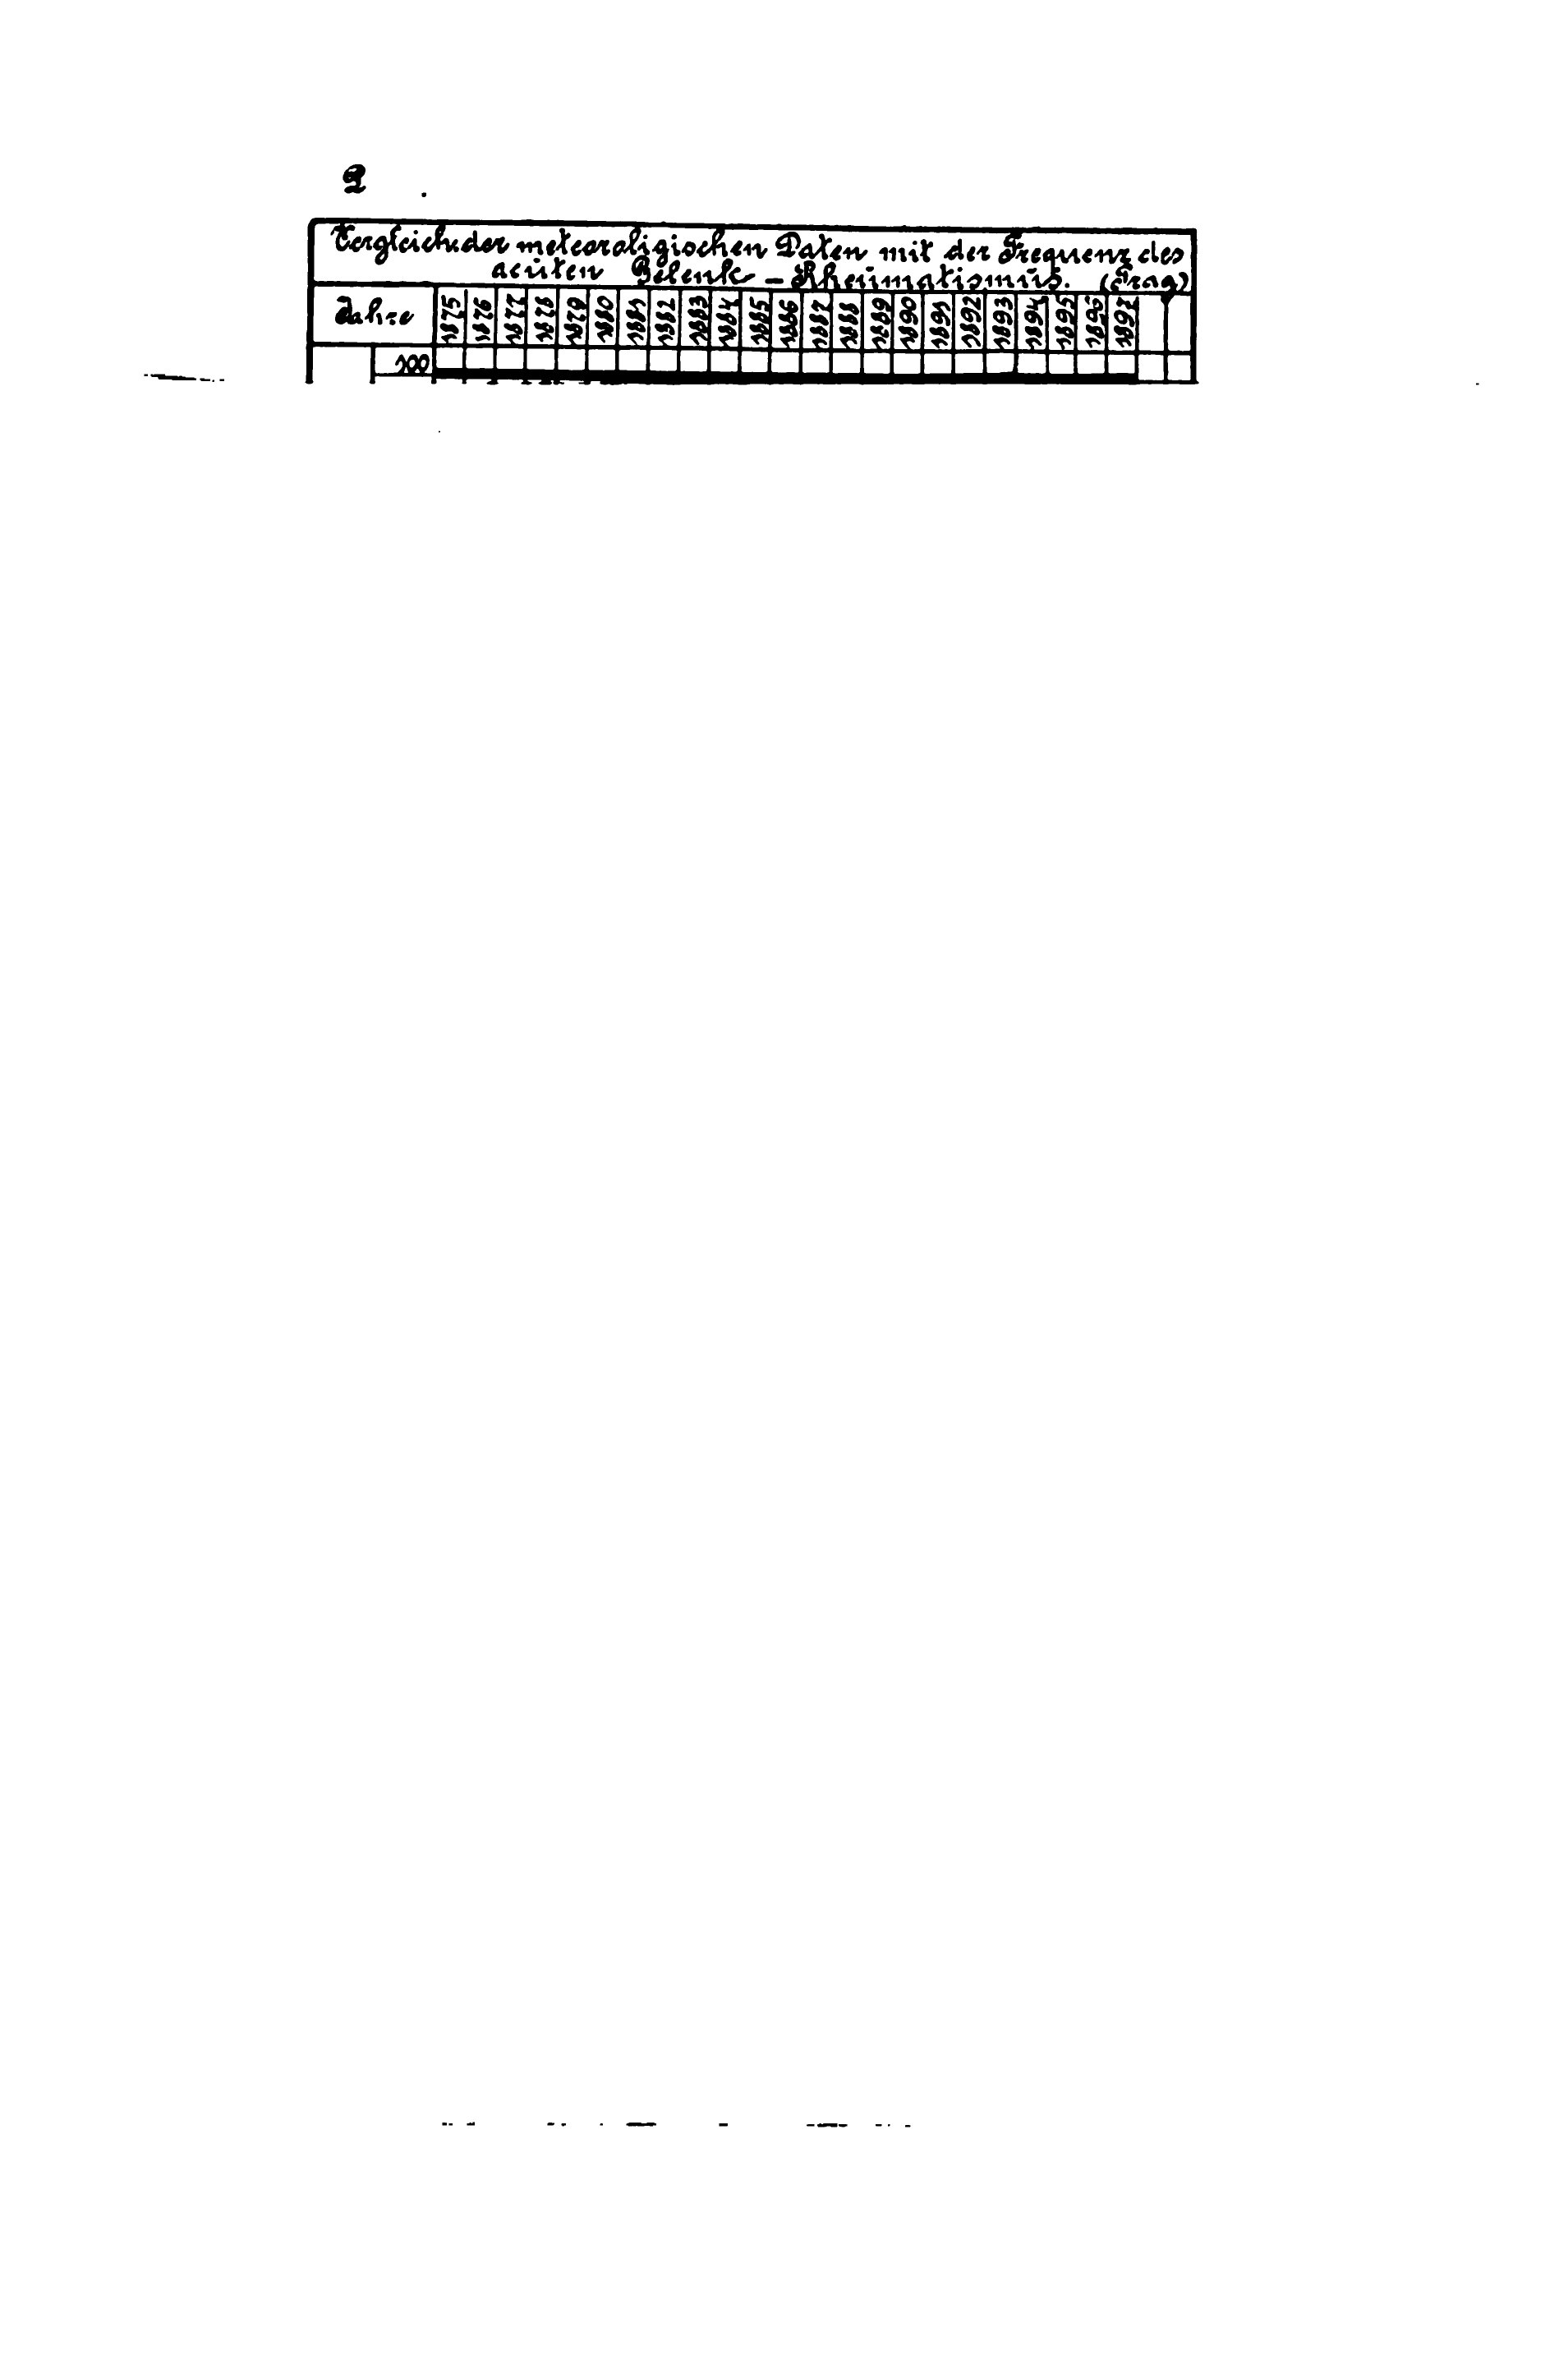 2
Vergleich der meteoroligischen Daten mit der Frequenz des
acuten Gelenk - Rheumatismus. (Prag)
Jahre 1875 1876 1877 1878 1879 1880 1881 1882 1883 1884 1885 1886 1887 1888 1889 1890 1891 1892 1893 1894 1895 1896 1897
100